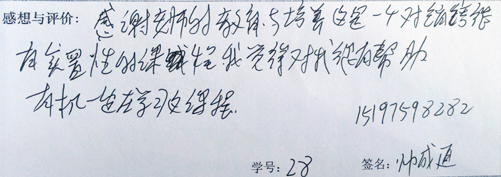 感想与评价：感谢老师的教练与培养 这是一个对销售很
有实置性的课程 我觉得对我很有帮助
有机一定在学习文课程.
15197598282
学号：28 签名：帅成通